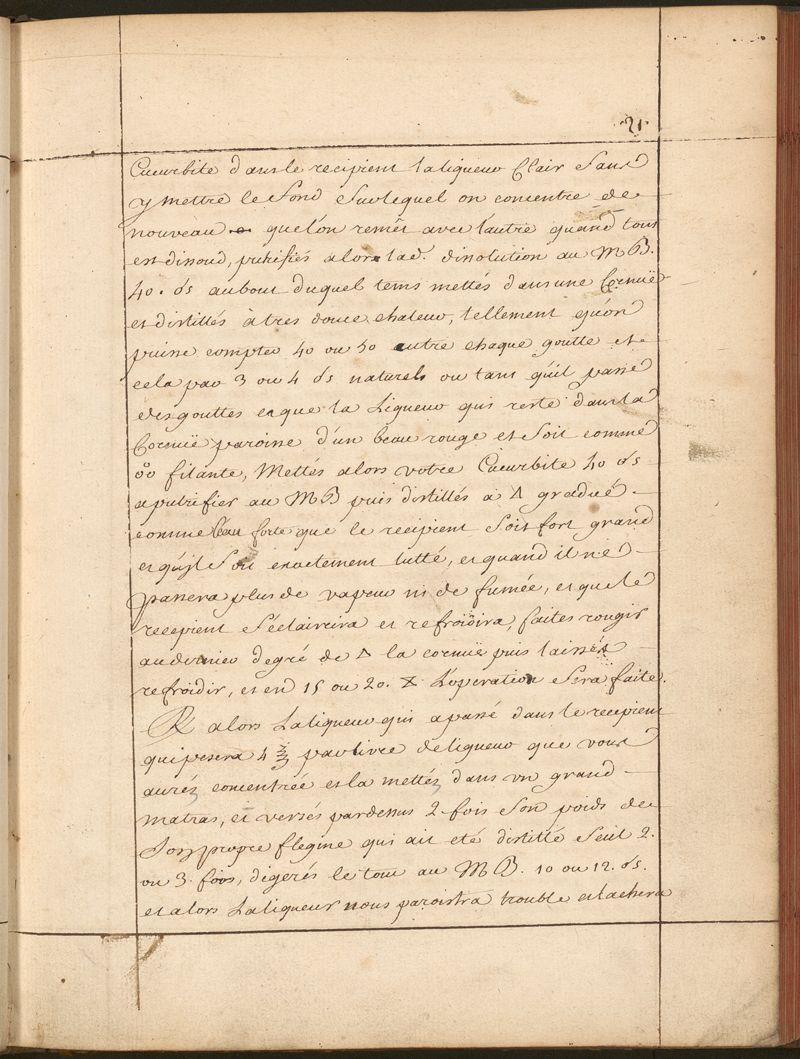 21
Cucurbite dans le recipient la liqueur Clair Sans
y mettre le fond Sur lequel on concentre de
nouveau que l'on remet avec l'autre quand tout
est dissoud, putrifiés alors lad. dissolution au MB.
40. ds au bout duquel tems mettés dans une Cornuë
et distillés à tres douce chaleur, tellement qu'on
puisse compter 40 ou 50 entre chaque goutte et
cela par 3 ou 4 ds naturels ou tant qu'il passe
des gouttes et que la Liqueur qui reste dans la
Cornuë paroisse d'un beau rouge et soit comme
filante, Mettés alors votre Cucurbite 40 ds
a putrifier au MB puis distillés a △ gradué
comme l'eau forte que le recipient soit fort grand
et qu'jl soit exactement lutté, et quand il ne
passera plus de vapeur ni de fumée, et que le
recepient s'éclaircira et refroidira, faites rougir
au dernier degré de △ la cornuë puis laissés
refroidir, et en 15 ou 20. L'operation sera faite.
R alors La liqueur qui a passé dans le recepient
qui pesera 4 ℥ par livre de liqueur que vous
aurés concentrée et la mettés dans un grand
matras, et versés pardessus 2 fois son poids de
son propre flegme qui ait eté distillé seul 2.
ou 3. fois, digerés le tout au MB. 10 ou 12. ds.
et alors La liqueur vous paroistra trouble et lachera